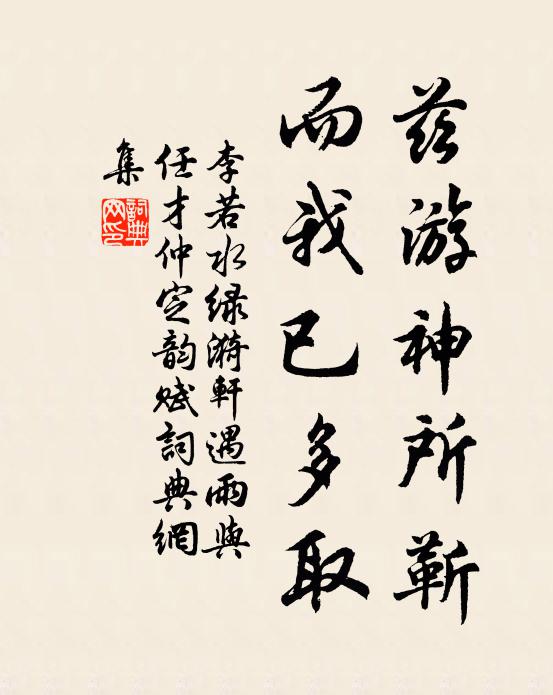 茲游神所蘄
而我已多取
李若水绿漪軒遇雨與
任才仲定韵赋詞典網
集
詞典網印